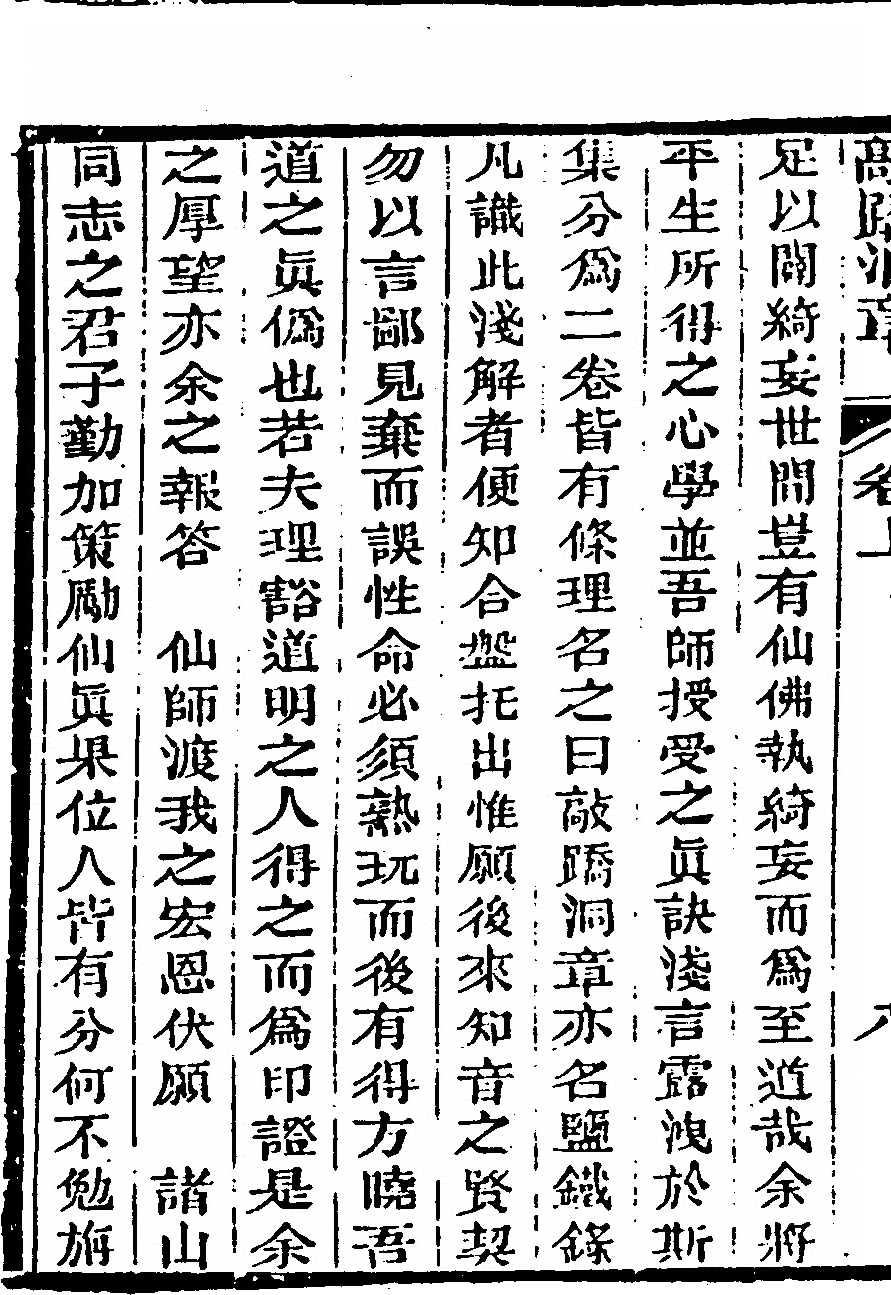 足以闢綺妄世間豈有仙佛執綺妄而爲至道哉余將
平生所得之心學並吾師授受之眞訣淺言露洩於斯
集分爲二卷皆有條理名之曰敲蹻洞章亦名鹽鐵錄
凡識此淺解者便知合盤托出惟願後來知音之賢契
勿以言鄙見棄而誤性命必須熟玩而後有得方曉吾
道之眞僞也若夫理豁道明之人得之而爲印證是余
之厚望亦余之報答　仙師渡我之宏恩伏願　諸山
同志之君子勤加策勵仙眞果位人皆有分何不勉旃